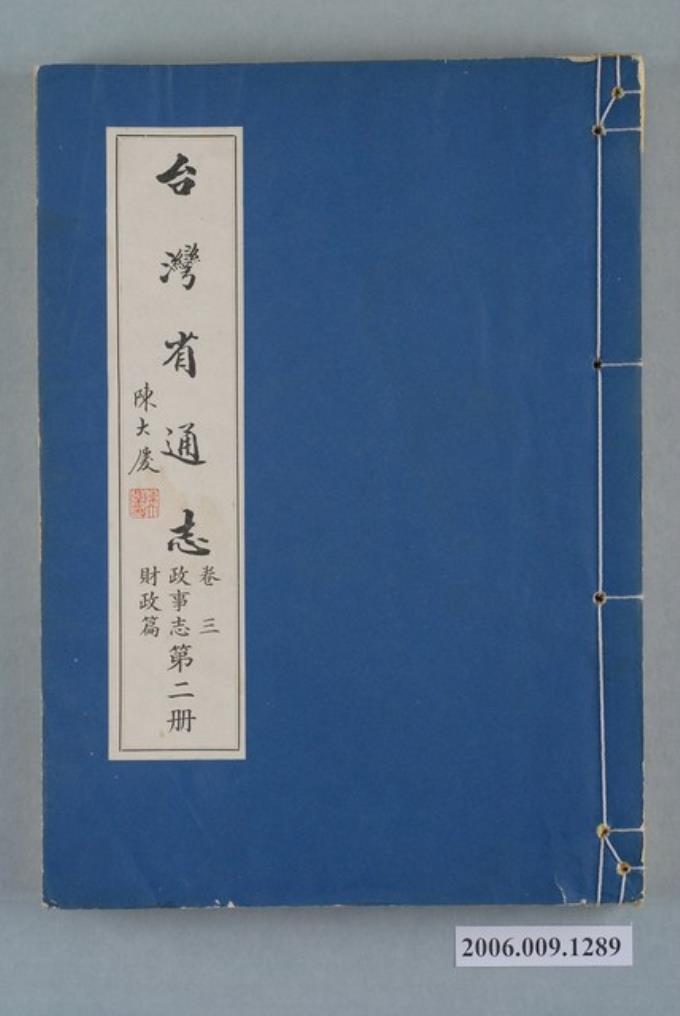 台灣省通志
卷三
政事志
財政篇
第二册
陳大慶
2006.009.1289